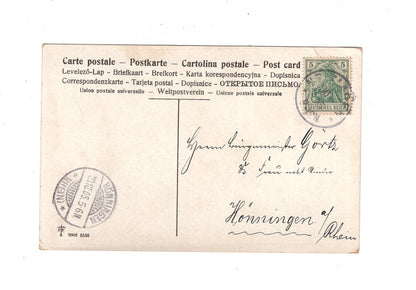 Carte postale - Postkarte - Cartolina postale - Post card
Levelező-Lap - Briefkaart - Brefkort - Karta korespondencyjna - Dopisnica
Correspondenzkarte - Tarjeta postal - Dopisnice - ОТКРЫТОЕ ПИСЬМО
Union postale universelle - Weltpostverein - Unione postale universale.
5 5
DEUTSCHES REICH
Herrn Bürgermeister Gortz
Frau
Hönningen a/
Rhein
HÖNNINGEN
(RHEIN)
05. 5-6N